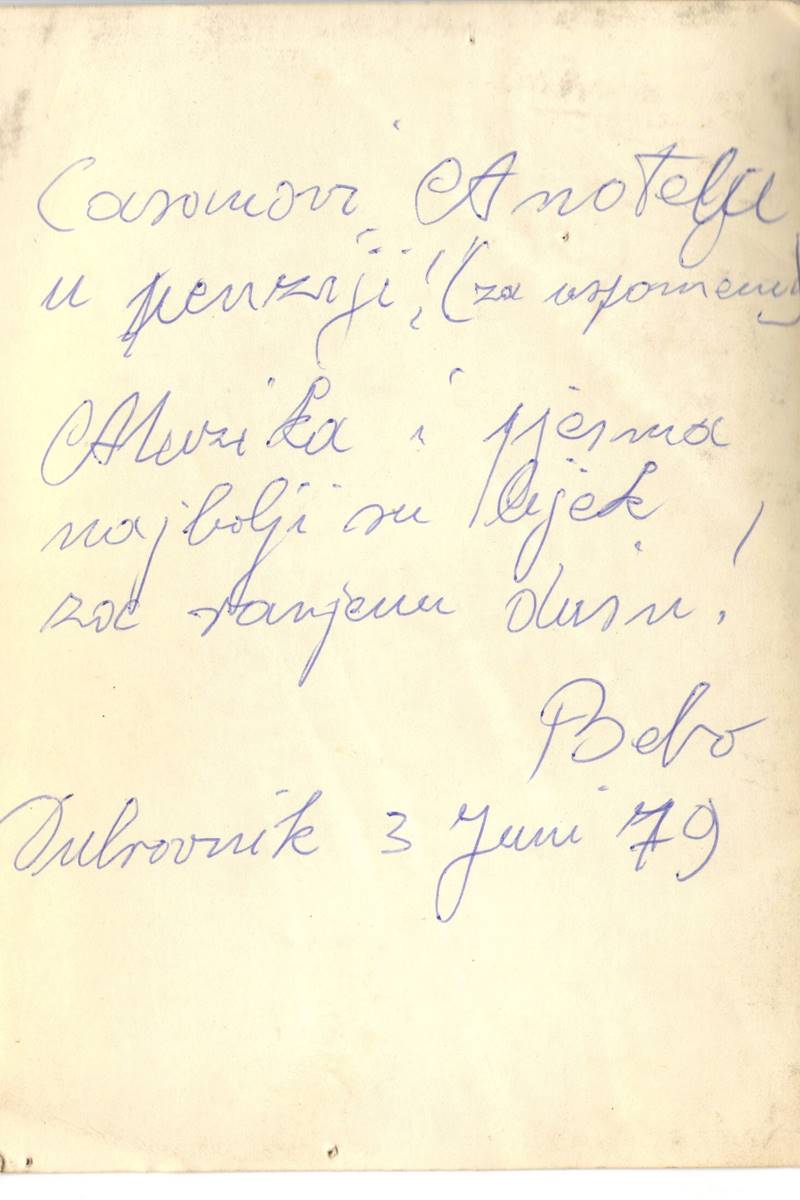 Casanovi Anotelju
u penziji! (za uspomenu)
Muzika i pjesma
najbolji su lijek
za ranjenu dušu!
Bebo
Dubrovnik 3 Juni 79